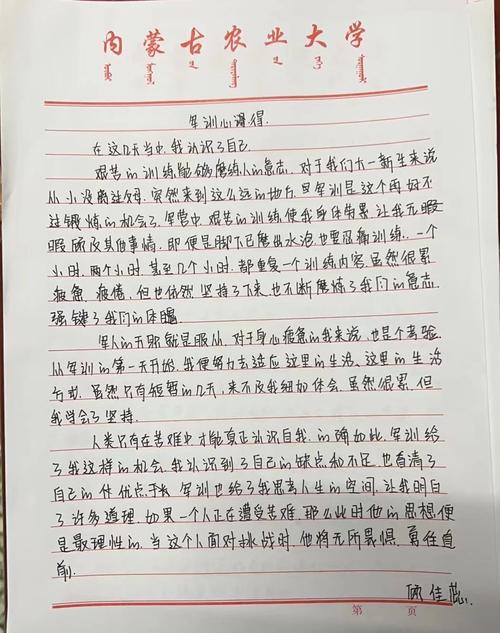 内蒙古农业大学
军训心得
在这几天当中,我认识了自己
艰苦的训练能够磨练人的意志,对于我们大一新生来说
从小没离过父母,突然来到这么远的地方,且军训是这个再好不
过锻炼的机会了,军营中,艰苦的训练使我身体劳累,让我无暇
暇顾及其他事情.即便是脚下已磨出水泡也要忍痛训练.一个
小时,两个小时,甚至几个小时,都重复一个训练内容,虽然很累
疲惫、疲倦,但也依然坚持了下来,也不断磨炼了我们的意志,
强键了我们的体魄
军人的天职就是服从.对于身心疲惫的我来说,也是个考验.
从军训的第一天开始,我便努力去适应这里的生活、这里的生活
方式.虽然只有短暂的几天,来不及我细加体会.虽然很累,但
我学会了坚持.
人类只有在苦难中才能真正认识自我.的确如此,军训给
了我这样的机会.我认识到了自己的缺点和不足,也看清了
自己的优点.军训也给了我思考人生的空间,让我明白
了许多道理,如果一个人正在遭受苦难,那么此时他的思想便
是最理性的,当这个人面对挑战时,他将无所畏惧,勇往直
前.
佳蕊.
第 页